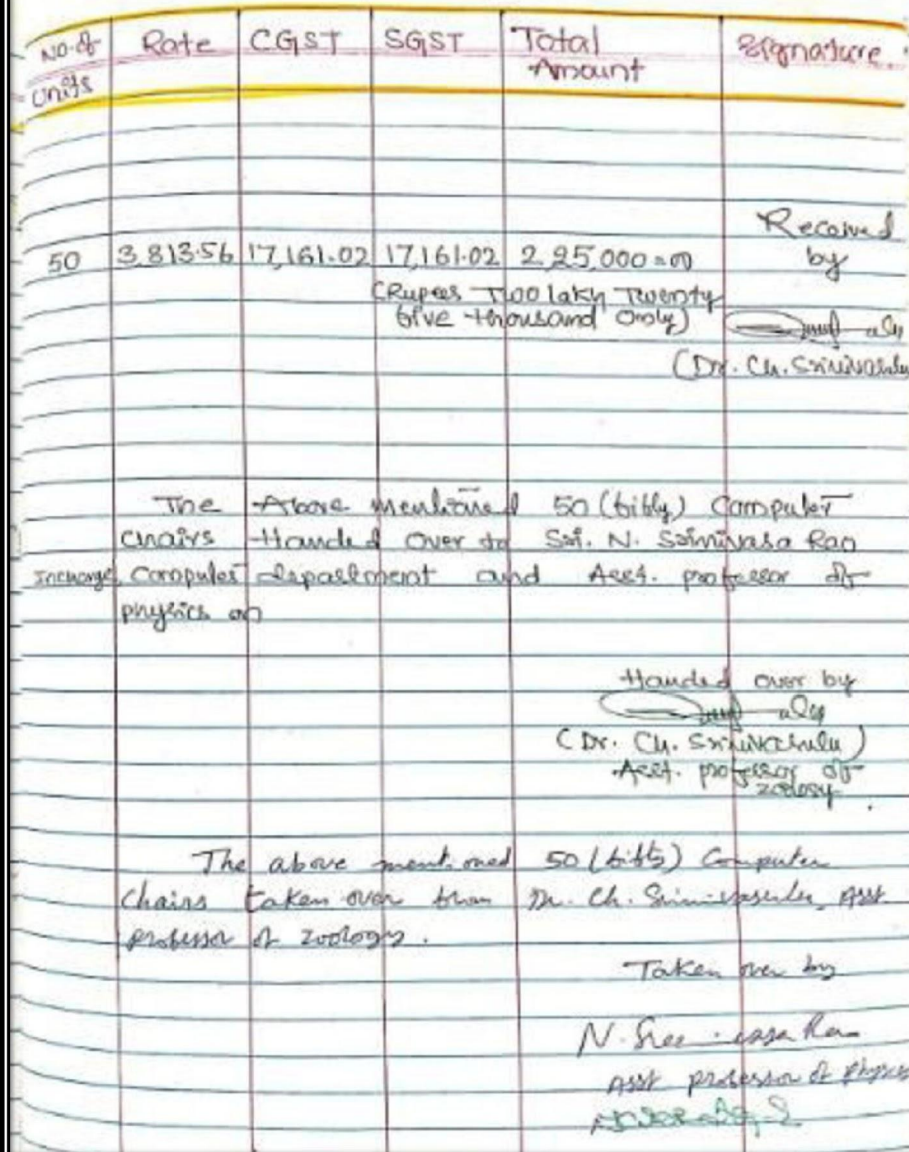 No. of Units Rate CGST SGST Total Amount Signature
Received
50 3,813.56 17,161.02 17,161.02 2,25,000=00 by
(Rupees Two lakh Twenty
five thousand only)
(Dr. Ch. Srinivasulu
The Above mentioned 50 (fifty) Computer
chairs Handed over to Sri. N. Srinivasa Rao
Incharge Computer department and Asst. professor of
physics on
Handed over by
(Dr. Ch. Srinivasulu)
Asst. professor of
zoology.
The above mentioned 50 (fifty) Computer
Chairs taken over from Dr. Ch. Srinivasulu, Asst
professor of zoology.
Taken over by
N. Rao
Asst professor of Physics